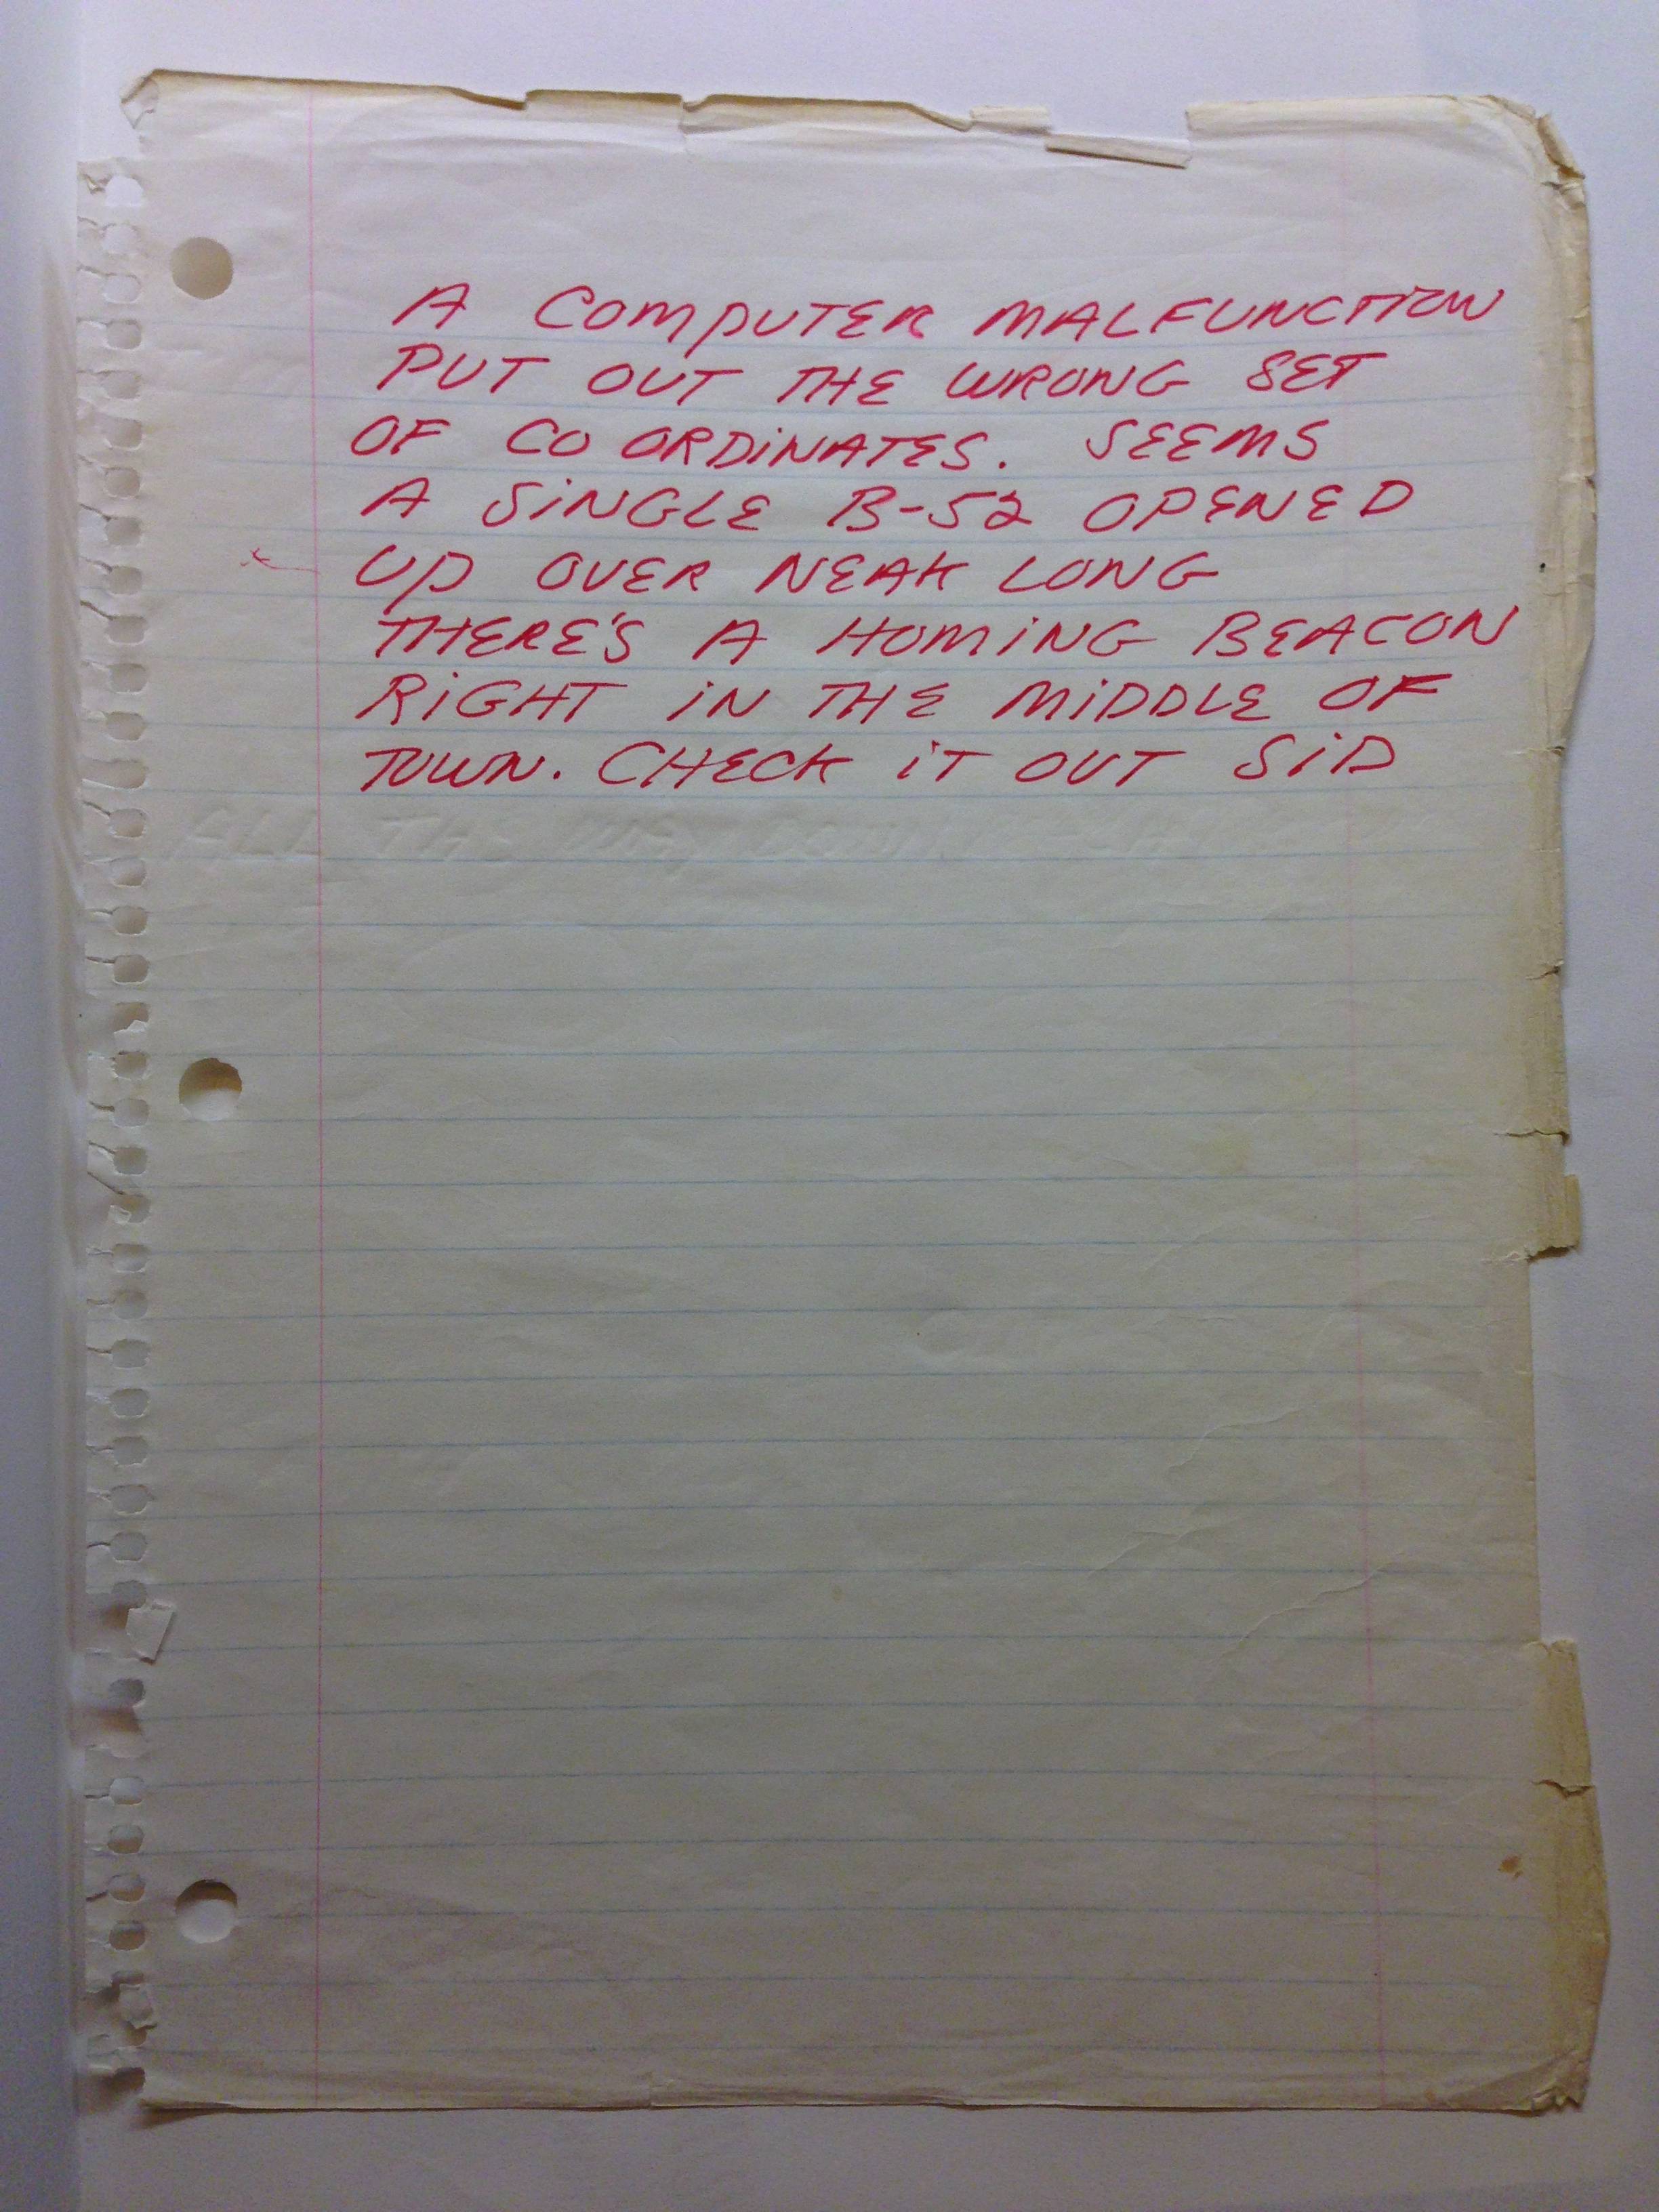 A COMPUTER MALFUNCTION
PUT OUT THE WRONG SET
OF CO ORDINATES. SEEMS
A SINGLE B-52 OPENED
UP OVER NEAK LONG
THERE'S A HOMING BEACON
RIGHT IN THE MIDDLE OF
TOWN. CHECK IT OUT SID
ALL THE WAY DOWN